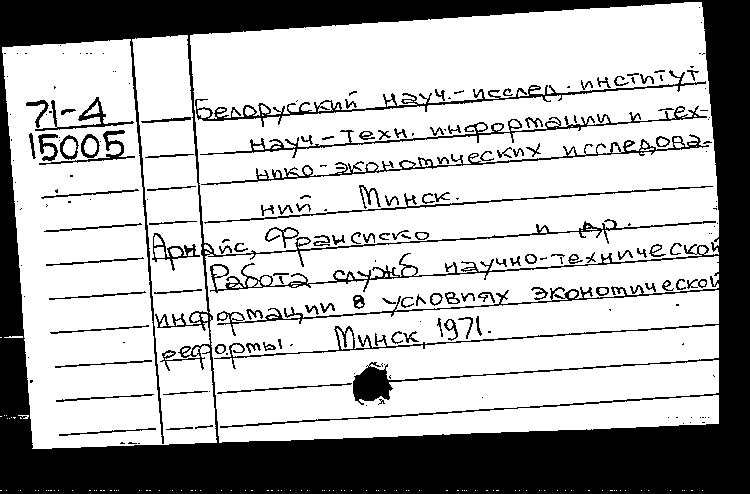 71-4
15005
Белорусский науч.-исслед. институт
науч.-техн. информации и тех-
нико-экономических исследова-
ний. Минск.
Арнайс, Франсиско и др.
Работа служб научно-технической
информации в условиях экономической
реформы. Минск, 1971.